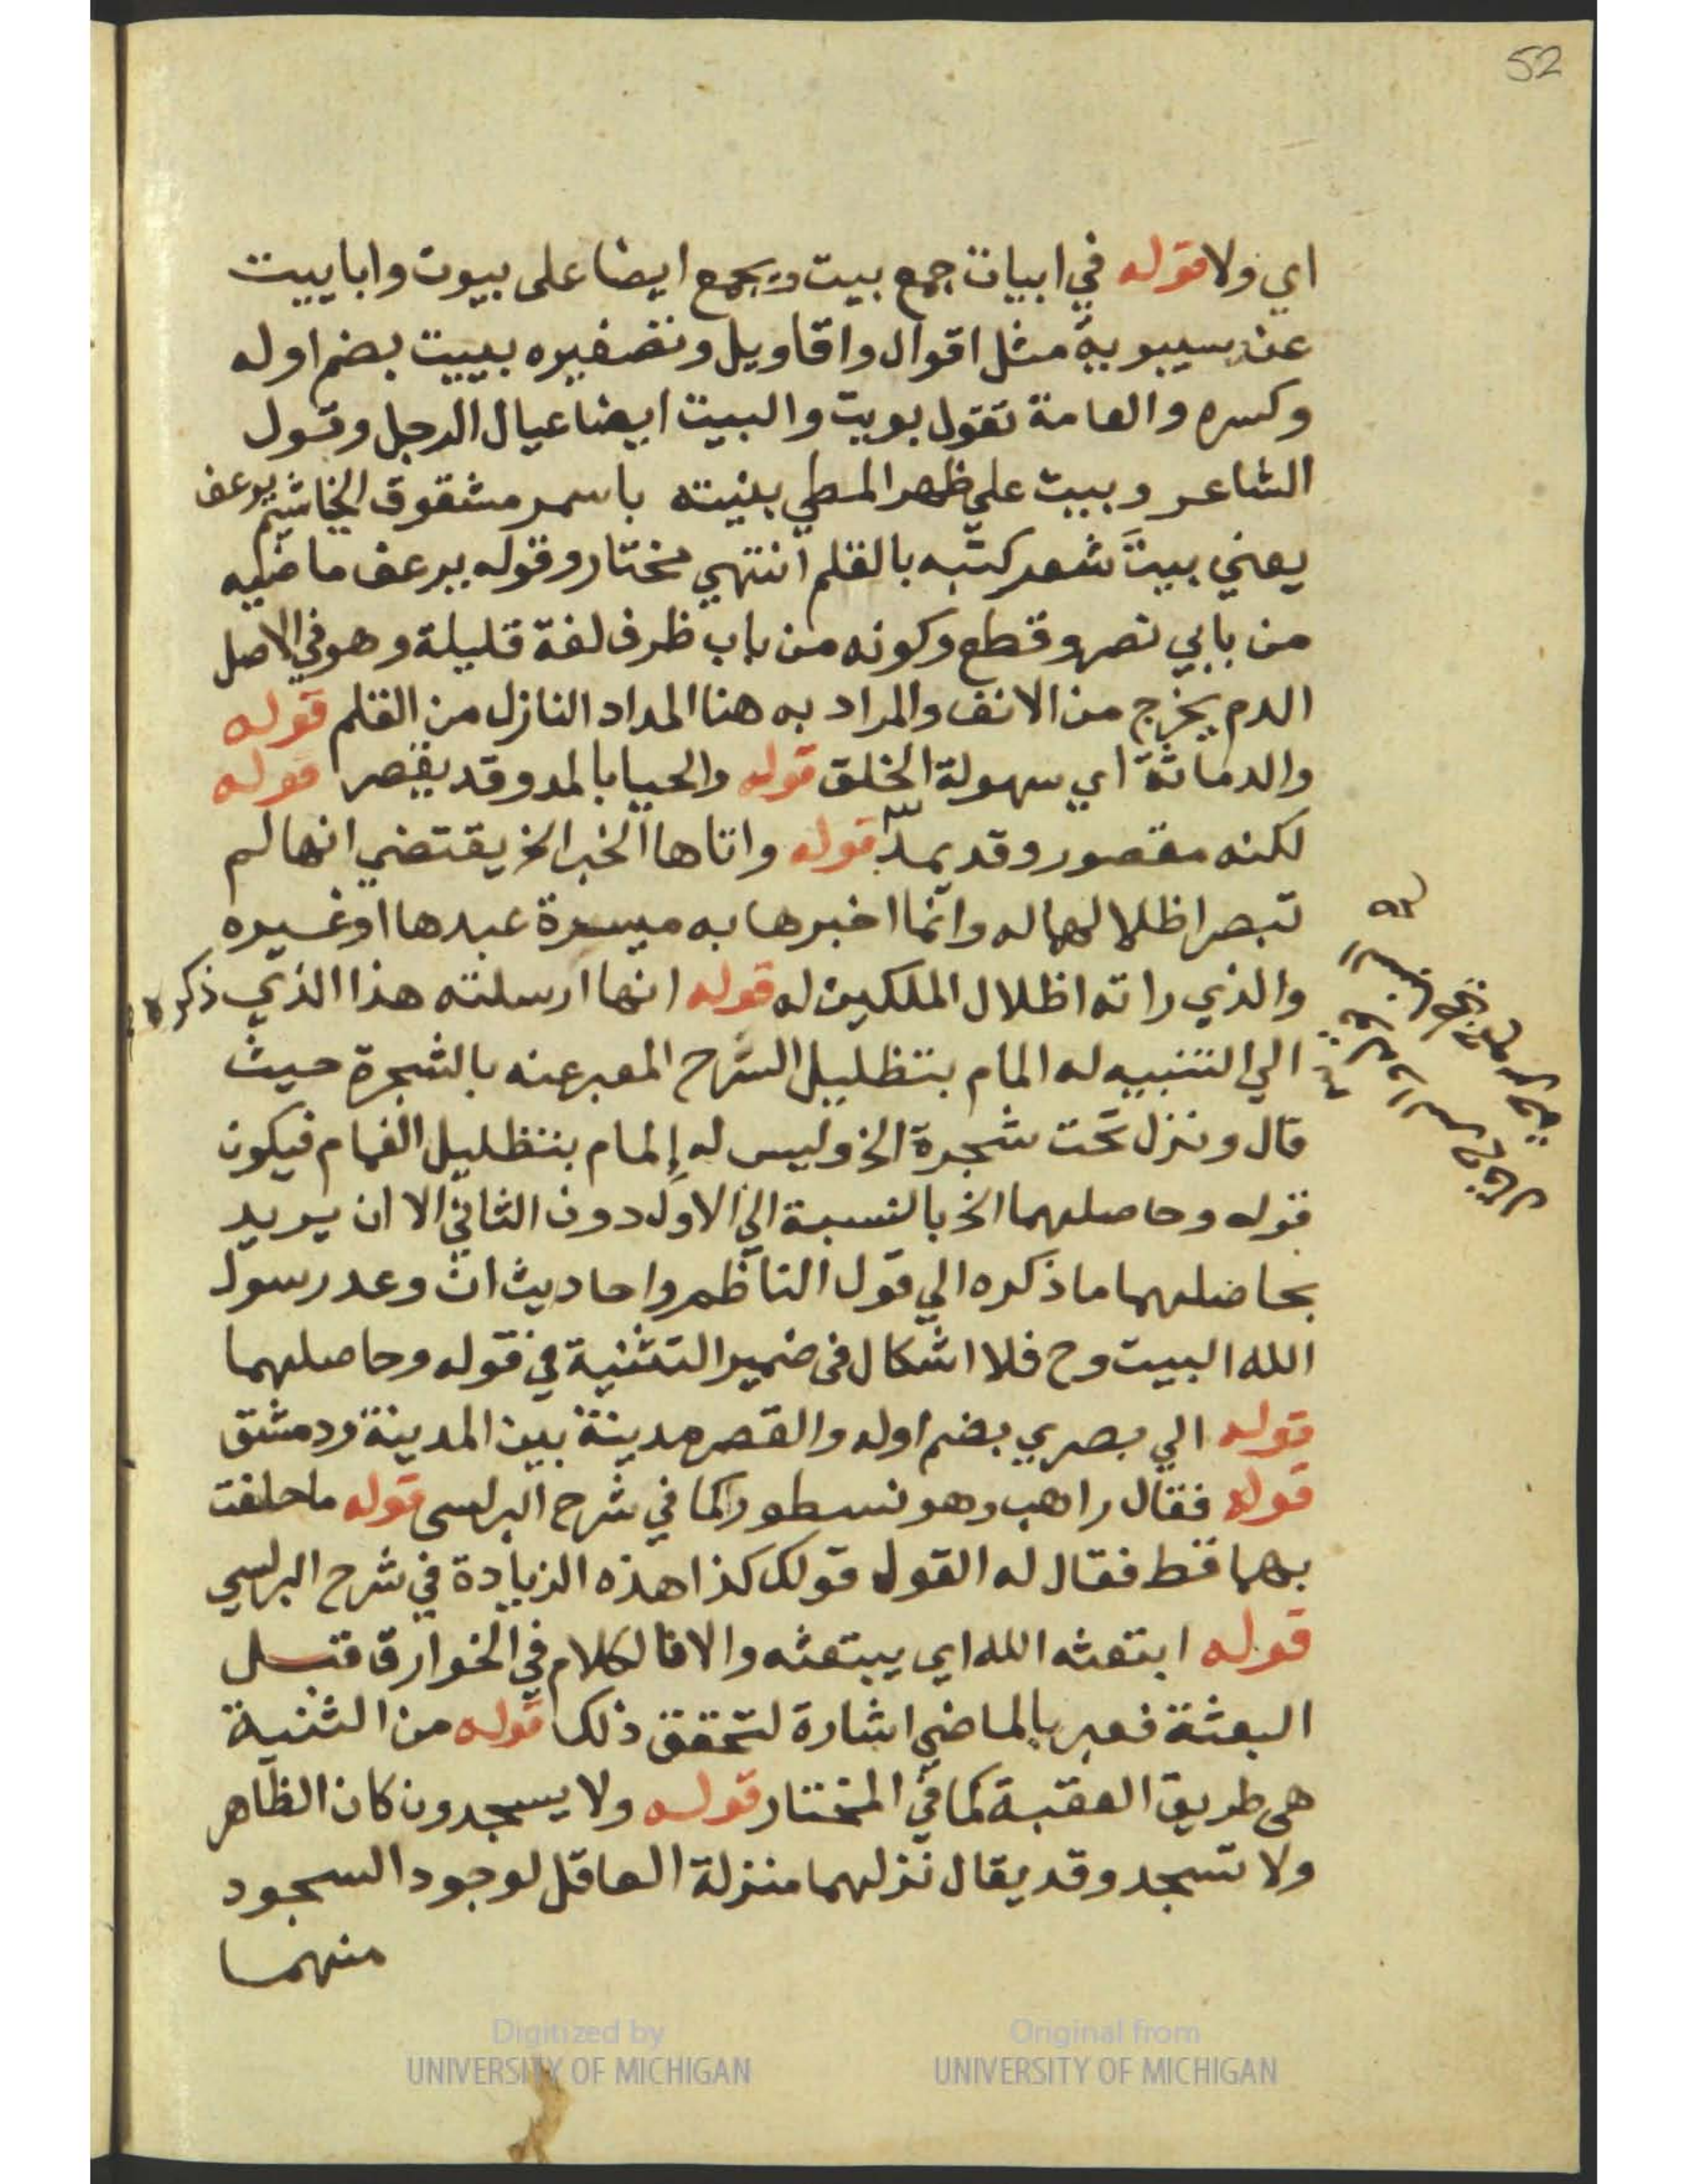 52
اي ولا قوله في ابيات جمع بيت ويجمع ايضا على بيوت وابابيت
عند سيبويه مثل اقوال واقاويل وتصغيره بييت بضم اوله
وكسره والعامة تقول بويت والبيت ايضا عيال الرجل وقول
الشاعر وبيت على ظهر المطي بنيته باسمر مشقوق الخياشيم يرعف
يعني بيت شعر كتبه بالقلم انتهي مختار وقوله يرعف ماضيه
من بابي نصر وقطع وكونه من باب ظرف لغة قليلة وهو في الاصل
الدم يخرج من الانف والمراد به هنا المداد النازل من القلم قوله
والدماثة اي سهولة الخلق قوله والحيا بالمد وقد يقصر قوله
لكنه مقصور وقد يمد قوله واتاها الخبر الخ يقتضي انها لم
تبصر اظلالهما له وانما اخبرها به ميسرة عبدها او غيره
والذي راته اظلال الملكين له قوله انها ارسلته هذا الذي ذكره
الي التنبيه له المام بتظليل السرح المعبر عنه بالشجرة حيث
قال ونزل تحت شجرة الخ وليس له إلمام بتظليل الغمام فيكون
قوله وحاصلهما الخ بالنسبة الي الاول دون الثاني الا ان يريد
بحاصلهما ما ذكره الي قول الناظم واحاديث ان وعد رسول
الله البيت وح فلا اشكال في ضمير التثنية في قوله وحاصلهما
قوله الي بصري بضم اوله والقصر مدينة بين المدينة ودمشق
قوله فقال راهب وهو نسطورا كما في شرح البرلسي قوله ما حلفت
بهما قط فقال له القول قولك كذا هذه الزيادة في شرح البرلسي
قوله ابتعثه الله اي يبتعثه والا فالكلام في الخوارق قبل
البعثة فعبر بالماضي اشارة لتحقق ذلك قوله من الثنية
هي طريق العقبة كما في المختار قوله ولا يسجدون كان الظاهر
ولا تسجد وقد يقال نزلهما منزلة العاقل لوجود السجود
منهما
Digitized by
UNIVERSITY OF MICHIGAN
Original from
UNIVERSITY OF MICHIGAN